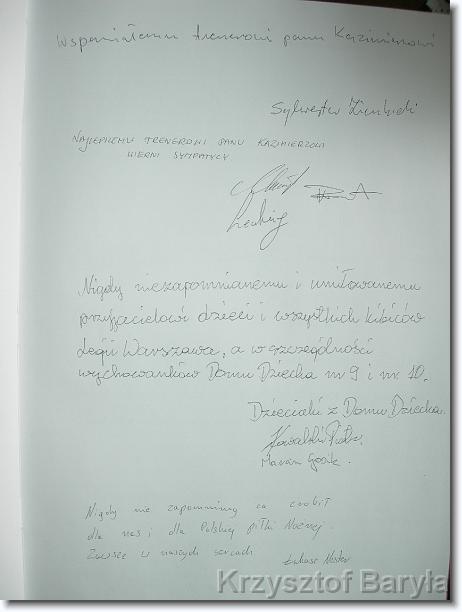 Wspaniałemu trenerowi panu Kazimierowi
Sylwester
NAJLEPSZEMU TRENEROWI PANU KAZIMIERZOWI
WIERNI SYMPATYCY
Nigdy niezapomnianemu i umiłowanemu
przyjacielowi dzieci i wszystkich kibiców
Legii Warszawa, a w szczególności
wychowanków Domu Dziecka nr 9 i nr 10.
Dzieciaki z Domu Dziecka.
Kowalski Piotr.
Marian
Nigdy nie zapomnimy co zrobił
dla nas i dla Polskiej Piłki Nożnej.
Zawsze w naszych sercach
Łukasz
Krzysztof Baryła